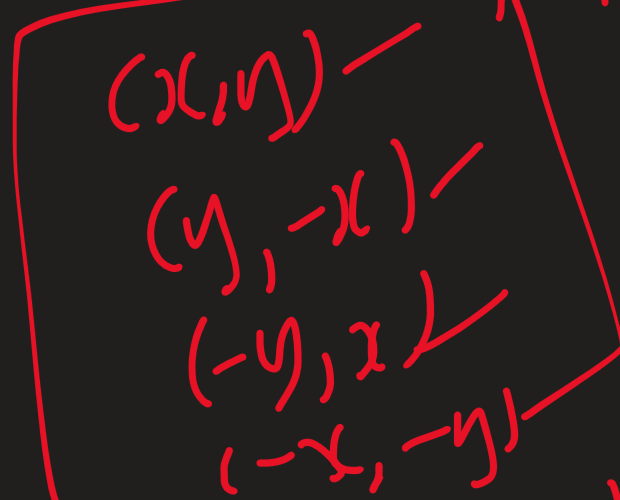 (x,y) –
(y,-x) –
(-y,x) –
(-x,-y) –